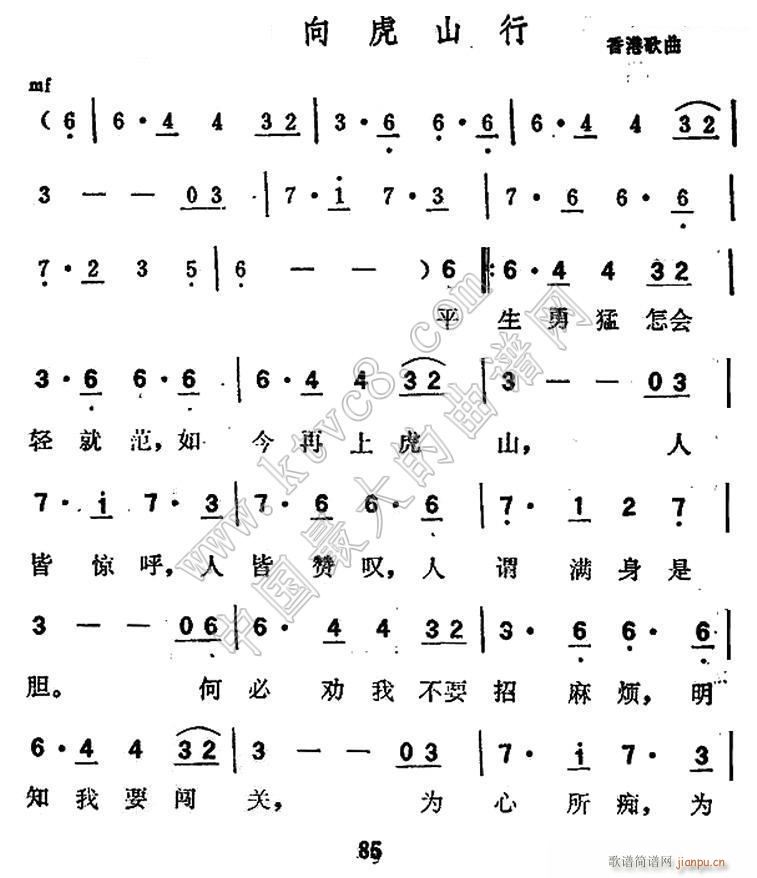 向虎山行
香港歌曲
mf
( 6 | 6 · 4 4 3 2 | 3 · 6 6 · 6 | 6 · 4 4 3 2 |
3 — — 0 3 | 7 · i 7 · 3 | 7 · 6 6 · 6 |
7 · 2 3 5 | 6 — — ) 6 ‖: 6 · 4 4 3 2 |
平 生 勇 猛 怎会
3 · 6 6 · 6 | 6 · 4 4 3 2 | 3 — — 0 3 |
轻 就 范，如 今 再 上 虎 山， 人
7 · i 7 · 3 | 7 · 6 6 · 6 | 7 · 1 2 7 |
皆 惊 呼，人 皆 赞 叹，人 谓 满 身 是
3 — — 0 6 | 6 · 4 4 3 2 | 3 · 6 6 · 6 |
胆。 何 必 劝 我 不要 招 麻 烦，明
6 · 4 4 3 2 | 3 — — 0 3 | 7 · i 7 · 3 |
知 我 要 闯 关， 为 心 所 痴，为
www.ktvc8.com
中国最大的曲谱网
85
歌谱简谱网 jianpu.cn